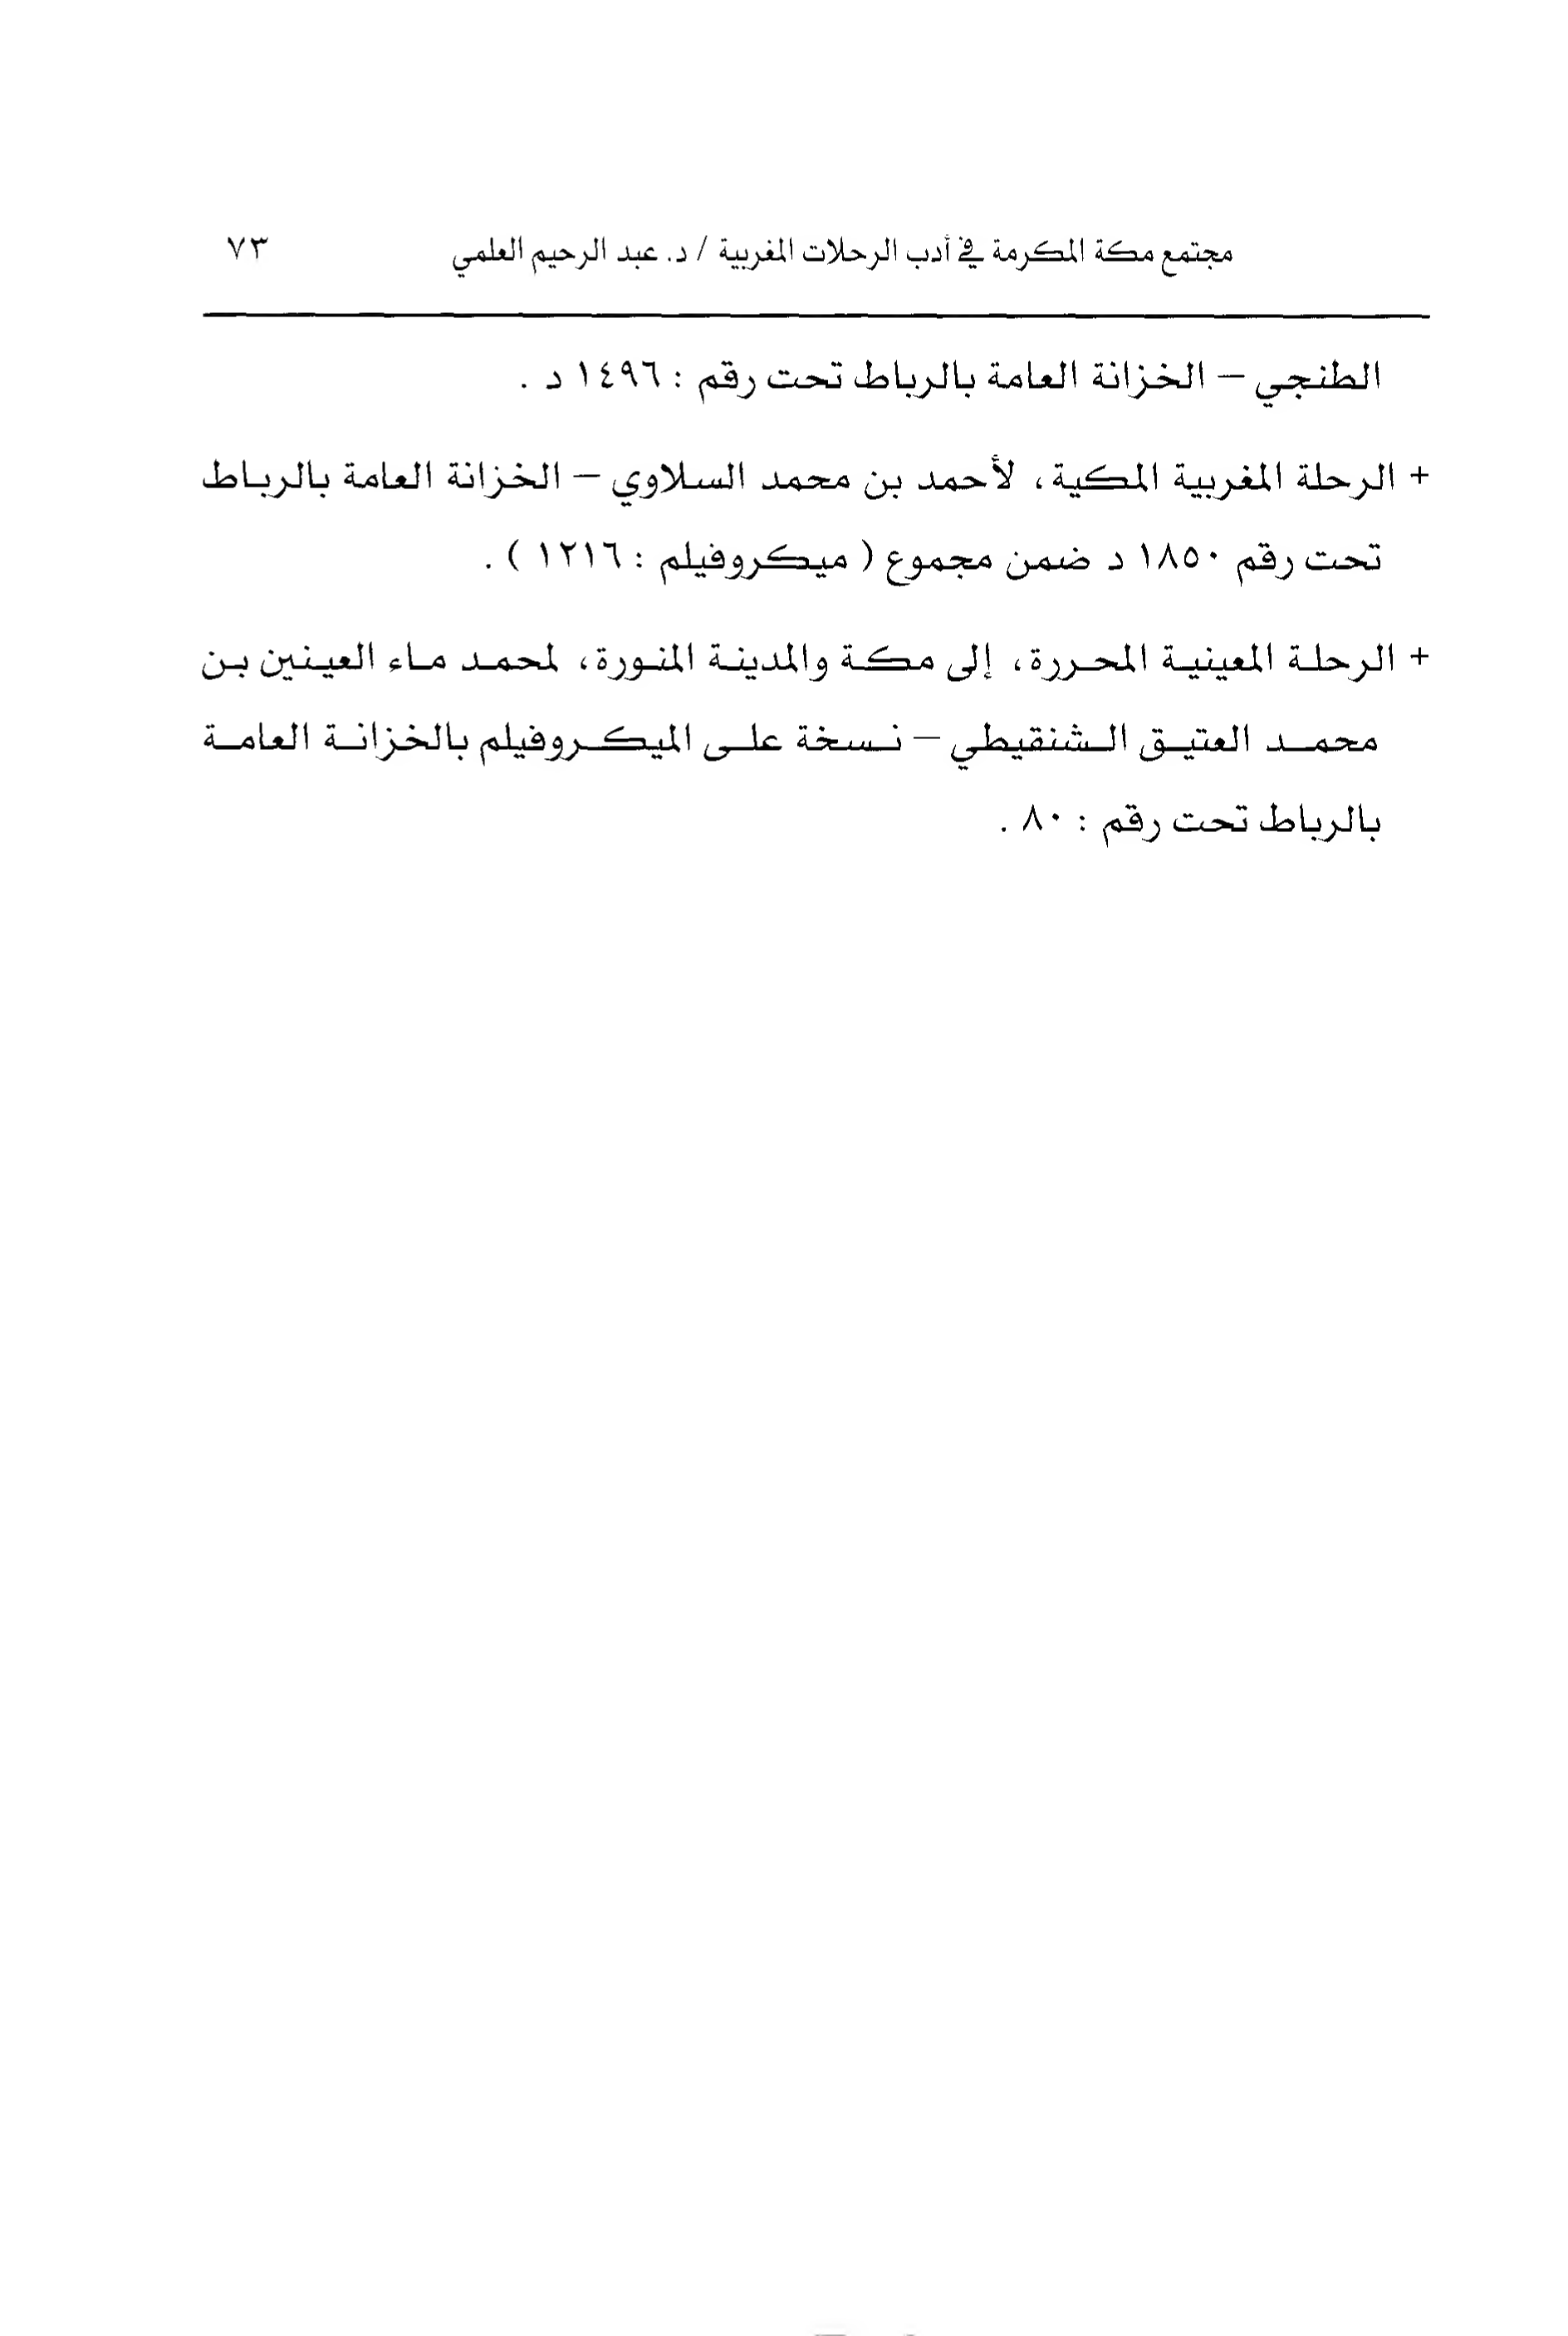 مجتمع مكة المكرمة في أدب الرحلات المغربية / د. عبد الرحيم العلمي ٧٣
الطنجي – الخزانة العامة بالرباط تحت رقم : ١٤٩٦ د .
+ الرحلة المغربية المكية، لأحمد بن محمد السلاوي – الخزانة العامة بالرباط
تحت رقم ١٨٥٠ د ضمن مجموع ( ميكروفيلم : ١٢١٦ ) .
+ الرحلة المعينية المحررة، إلى مكة والمدينة المنورة، لمحمد ماء العينين بن
محمد العتيق الشنقيطي – نسخة على الميكروفيلم بالخزانة العامة
بالرباط تحت رقم : ٨٠ .